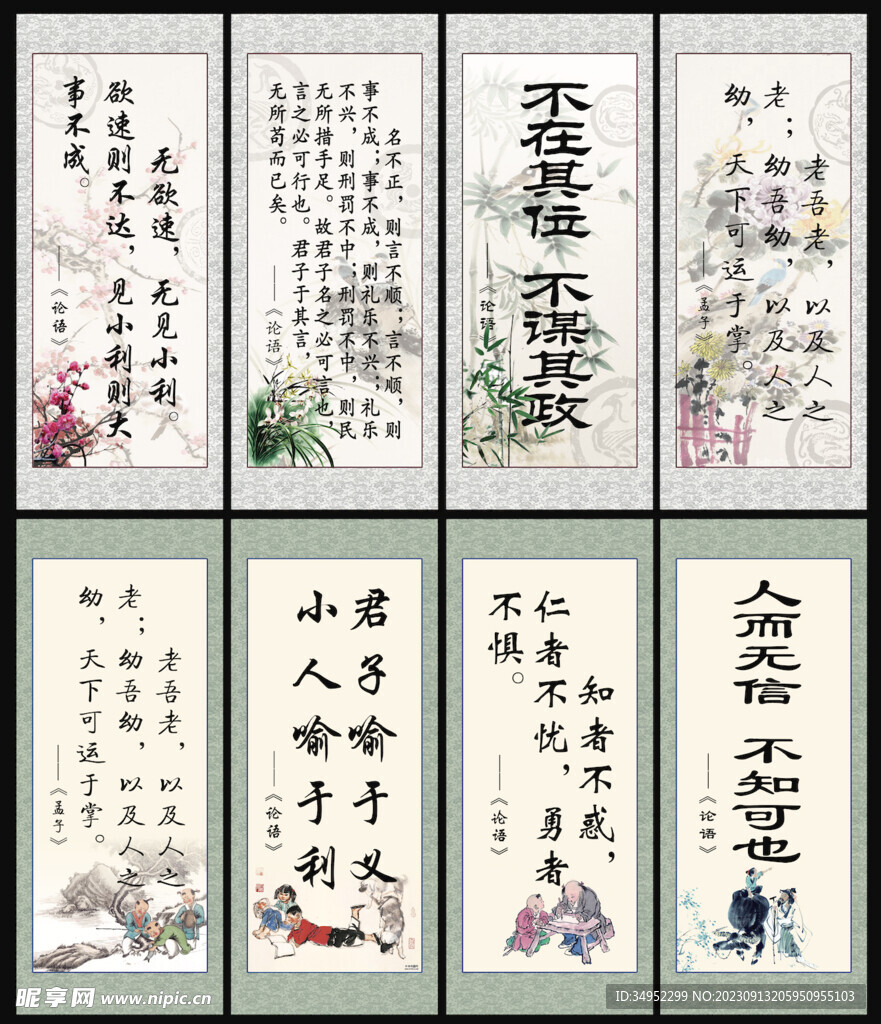 无欲速，无见小利。
欲速则不达，见小利则大
事不成。
——《论语》
名不正，则言不顺；言不顺，则
事不成；事不成，则礼乐不兴；礼乐
不兴，则刑罚不中；刑罚不中，则民
无所措手足。故君子名之必可言也，
言之必可行也。君子于其言，
无所苟而已矣。
——《论语》
不在其位 不谋其政
——《论语》
老吾老，以及人之
老；幼吾幼，以及人之
幼，天下可运于掌。
——《孟子》
老吾老，以及人之
老；幼吾幼，以及人之
幼，天下可运于掌。
——《孟子》
君子喻于义
小人喻于利
——《论语》
知者不惑，
仁者不忧，勇者
不惧。
——《论语》
人而无信 不知可也
——《论语》
昵享网 www.nipic.cn
ID:34952299 NO:20230913205950955103